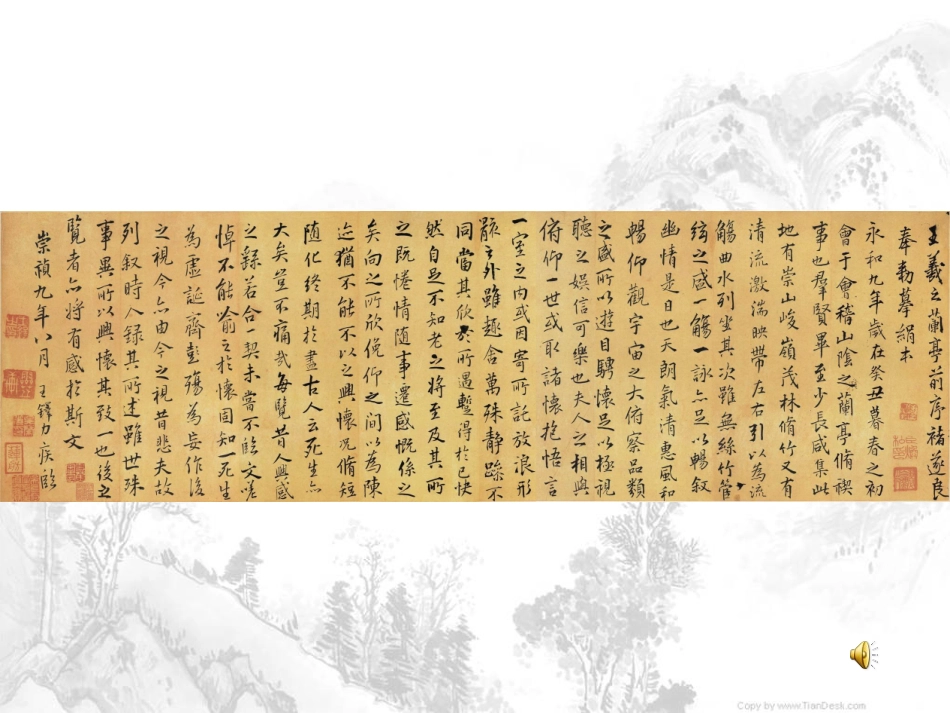 王羲之蘭亭前序褚遂良
奉勅摹絹本
永和九年歲在癸丑暮春之初
會于會稽山陰之蘭亭脩禊
事也羣賢畢至少長咸集此
地有崇山峻嶺茂林脩竹又有
清流激湍映帶左右引以為流
觴曲水列坐其次雖無絲竹管
絃之盛一觴一詠亦足以暢叙
幽情是日也天朗氣清惠風和
暢仰觀宇宙之大俯察品類
之盛所以遊目騁懷足以極視
聽之娛信可樂也夫人之相與
俯仰一世或取諸懷抱悟言
一室之内或因寄所託放浪形
骸之外雖趣舍萬殊静躁不
同當其欣於所遇蹔得於己怏
然自足不知老之將至及其所
之既惓情随事遷感慨係之
矣向之所欣俛仰之間以為陳
迹猶不能不以之興懷况脩短
随化終期於盡古人云死生亦
大矣豈不痛哉每覽昔人興感
之繇若合一契未嘗不臨文嗟
悼不能喻之於懷固知一死生
為虛誕齊彭殤為妄作後
之視今亦由今之視昔悲夫故
列叙時人録其所述雖世殊
事異所以興懷其致一也後之
覽者亦將有感於斯文
崇禎九年八月 王鐸力疾臨
Copy by www.TianDesk.com